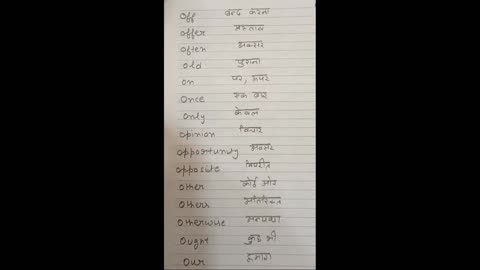 off बन्द करना
offer प्रस्ताव
often अक्सर
old पुराना
on पर, ऊपर
once एक बार
only केवल
opinion विचार
opportunity अवसर
opposite विपरीत
other कोई और
others अतिरिक्त
otherwise अन्यथा
ought कुछ भी
our हमारा